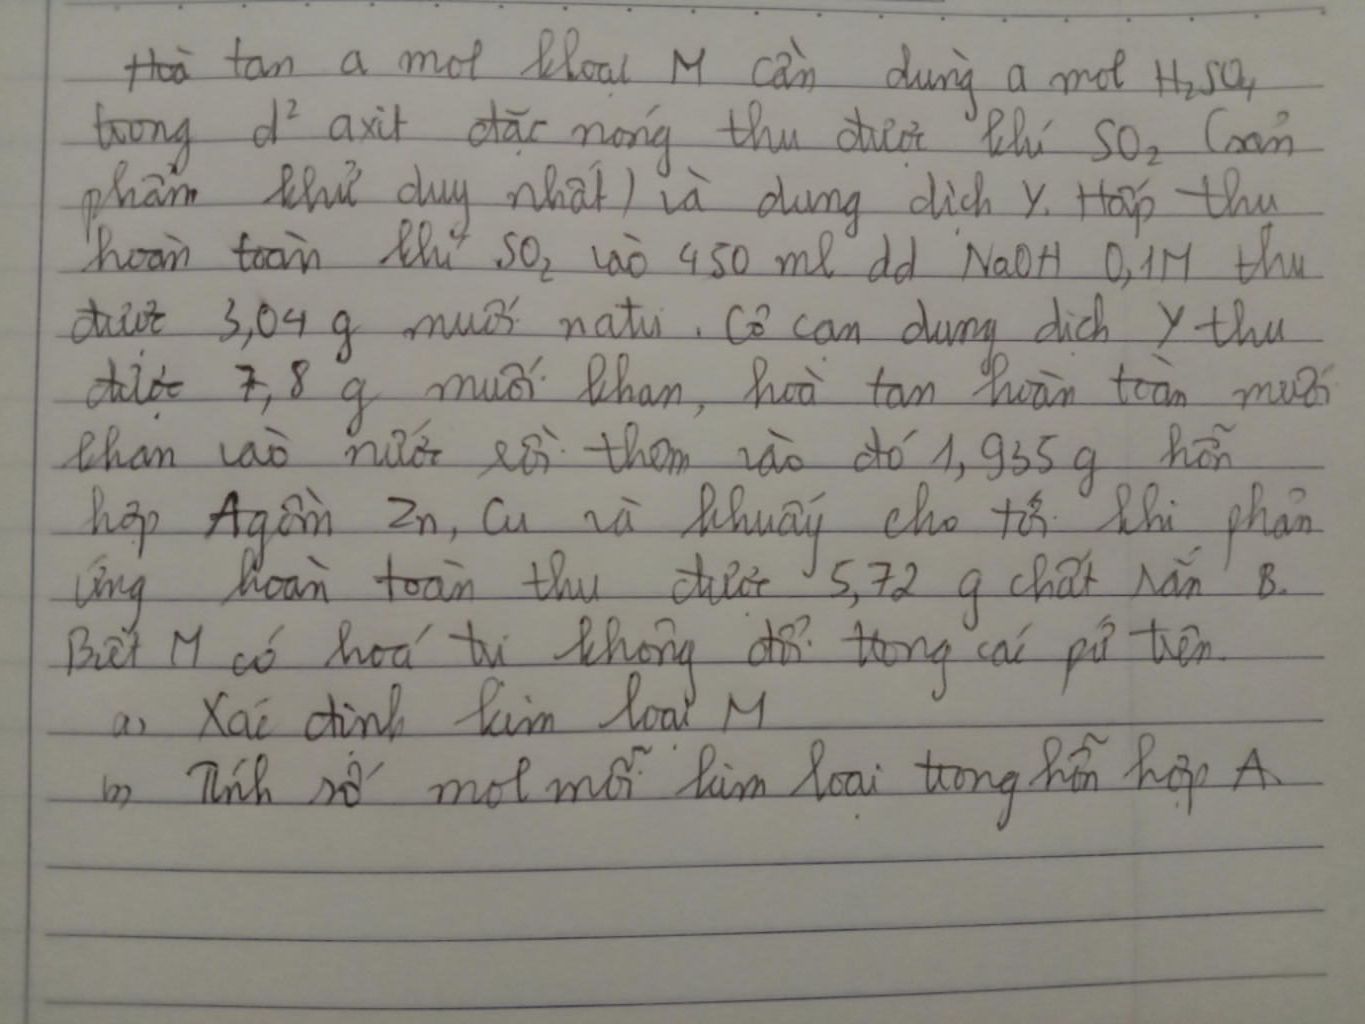 Hoà tan a mol kloại M cần dùng a mol H₂SO₄
trong d² axit đặc nóng thu được khí SO₂ (sản
phẩm khử duy nhất) và dung dịch Y. Hấp thu
hoàn toàn khí SO₂ vào 450 ml dd NaOH 0,1M thu
được 3,04 g muối natri. Cô cạn dung dịch Y thu
được 7,8 g muối khan, hoà tan hoàn toàn muối
khan vào nước rồi thêm vào đó 1,935 g hỗn
hợp A gồm Zn, Cu và khuấy cho tới khi phản
ứng hoàn toàn thu được 5,72 g chất rắn B.
Biết M có hoá trị không đổi trong các pứ trên.
a, Xác định kim loại M
b, Tính số mol mỗi kim loại trong hỗn hợp A.